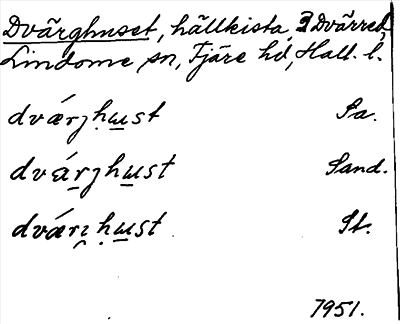 Dvärghuset, hällkista, Dvärred,
Lindome sn, Fjäre hd, Hall. l.
dvǽrȷḥɯ̲st Sa.
dvá̲rȷhɯ̲st Sand.
dvǽrı̨ḥɯ̲st St.
1951.